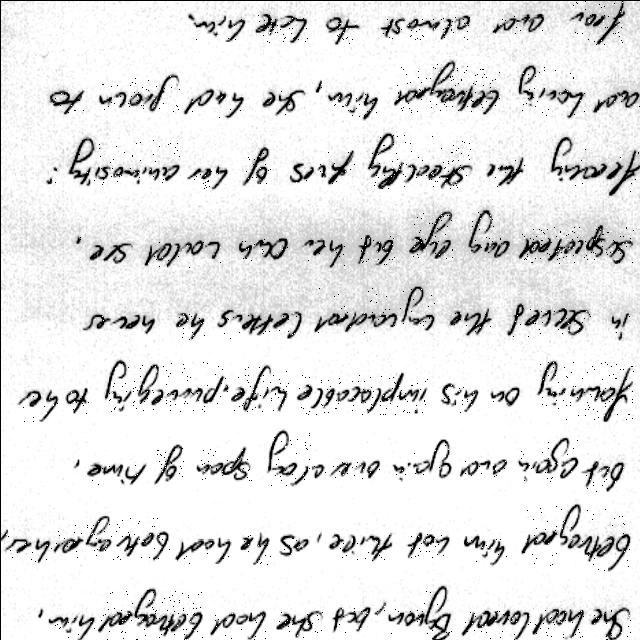 She had loved Byron, but she had betrayed him,
betrayed him not twice, as he had betrayed her,
but again and again over a long span of time,
fawning on his implacable wife, purveying to her
in secret the unguarded letters he never
suspected any eye but her own could see,
feeding the stealthy fires of her animosity:
and having betrayed him, she had grown to
fear and almost to hate him.